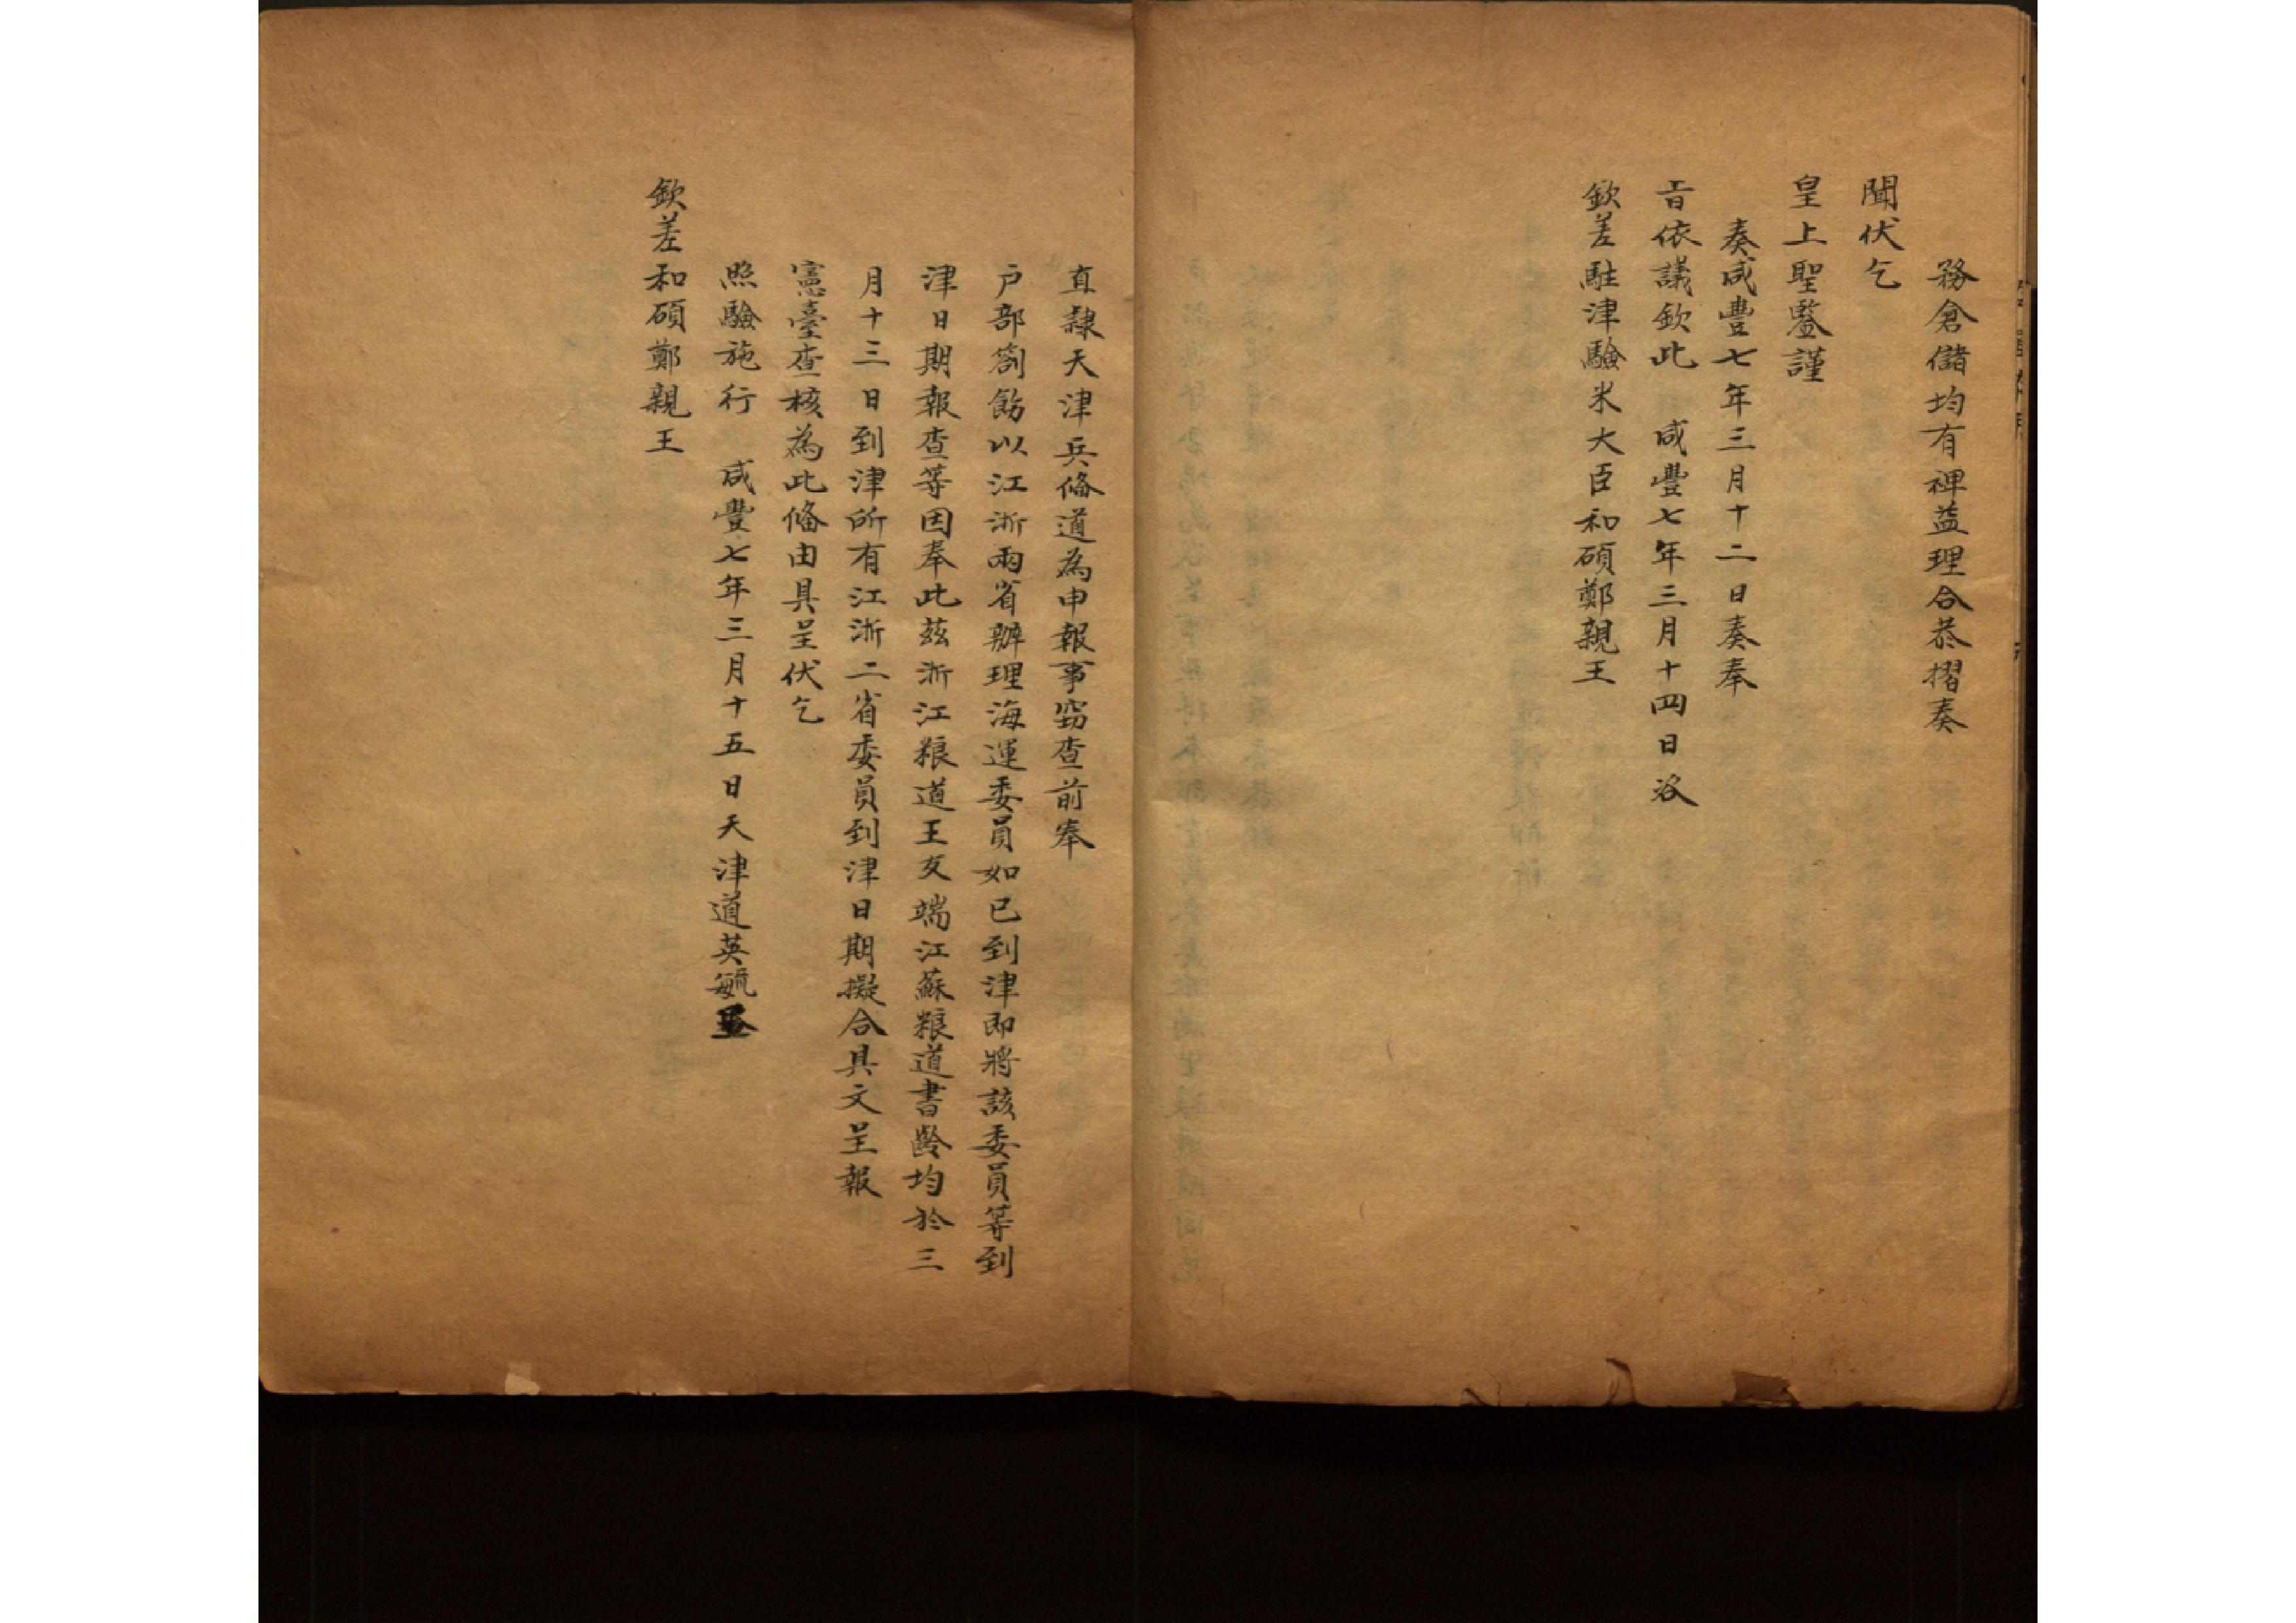 務倉儲均有裨益理合恭摺奏
聞伏乞
皇上聖鑒謹
奏咸豐七年三月十二日奏奉
旨依議欽此 咸豐七年三月十四日咨
欽差駐津驗米大臣和碩鄭親王
直隸天津兵俻道為申報事窃查前奉
户部劄飭以江浙兩省辦理海運委員如已到津即將該委員等到
津日期報查等因奉此茲浙江粮道王友端江蘇粮道書齡均於三
月十三日到津所有江浙二省委員到津日期擬合具文呈報
憲臺查核為此俻由具呈伏乞
照驗施行 咸豐七年三月十五日天津道英毓
欽差和碩鄭親王